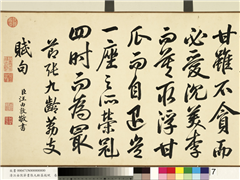 甘雖不貪而
必愛沉美李
而莫取浮甘
瓜而自退豈
一座之所榮冠
四時而為最
節張九齡荔支
賦句
臣汪由敦敬書
7